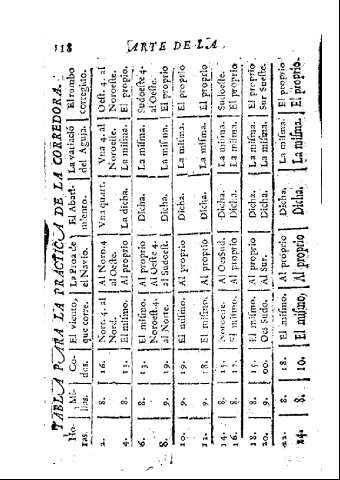 118 ARTE DE LA
TABLA PARA LA PRACTICA DE LA CORREDORA.
Ho- | Mi- | Co- | El viento, | La Proa de | El Abati- | La variació | El rumbo
ras. | llas. | dos. | que corre. | el Navio. | miento. | del Aguja. | corregido.
2. | 8. | 16. | Nort. 4. al | Al Noro.4 | Vna quart. | Vna 4. al | Oeſt. 4. al
Nord. | al Oeſte. | Noroeſte. | Noroeſte.
4. | 8. | 13. | El miſmo. | Al proprio | La dicha. | La miſma. | El propio.
6. | 8. | 13. | El miſmo. | Al proprio | Dicha. | La miſma. | Sudoeſte 4-
Noroeſt.4. | Al Oeſte 4- | al Oeſte.
8. | 9. | 19. | al Norte. | al Sudoeſt. | Dicha. | La miſma. | El proprio
10. | 9. | 19. | El miſmo. | Al proprio | Dicha. | La miſma. | El proprio
12. | 9. | 18. | El miſmo. | Al proprio | Dicha. | La miſma. | El proprio
14. | 8. | 15. | Noroeſte. | Al OesSud. | Dicha. | La miſma. | Sudoeſte.
16. | 8. | El miſmo. | Al proprio | Dicha. | La miſma. | El proprio
18. | 8. | 15. | El miſmo. | Al proprio | Dicha. | La miſma. | El proprio
20. | 9. | 00. | Oes Sudo. | Al Sur. | Dicha. | La miſma. | Sur Sueſte.
22. | 8. | 18. | El miſmo. | Al próprio | Dicha. | La miſma. | El proprio
24. | 8. | 10. | El miſmo, | Al proprio | Dicha. | La miſma. | El proprio.